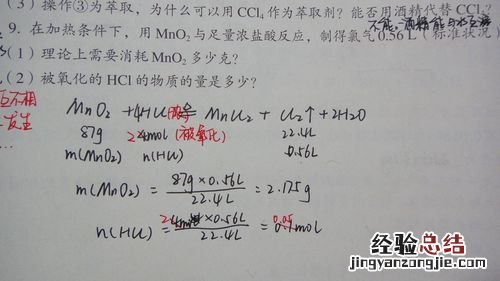 (3) 操作③为萃取,为什么可以用CCl₄作为萃取剂?能否用酒精代替CCl₄?
不能,酒精能与水互溶
9. 在加热条件下,用MnO₂与足量浓盐酸反应,制得氯气0.56 L(标准状况)
(1) 理论上需要消耗MnO₂多少克?
(2) 被氧化的HCl的物质的量是多少?
互不相
发生
MnO₂ + 4HCl(浓) ≜ MnCl₂ + Cl₂↑ + 2H₂O
87g 2mol(被氧化) 22.4L
m(MnO₂) n(HCl) 0.56L
m(MnO₂) = 87g×0.56L / 22.4L = 2.175g
n(HCl) = 2mol×0.56L / 22.4L = 0.05mol
经验总结
jingyanzongjie.com